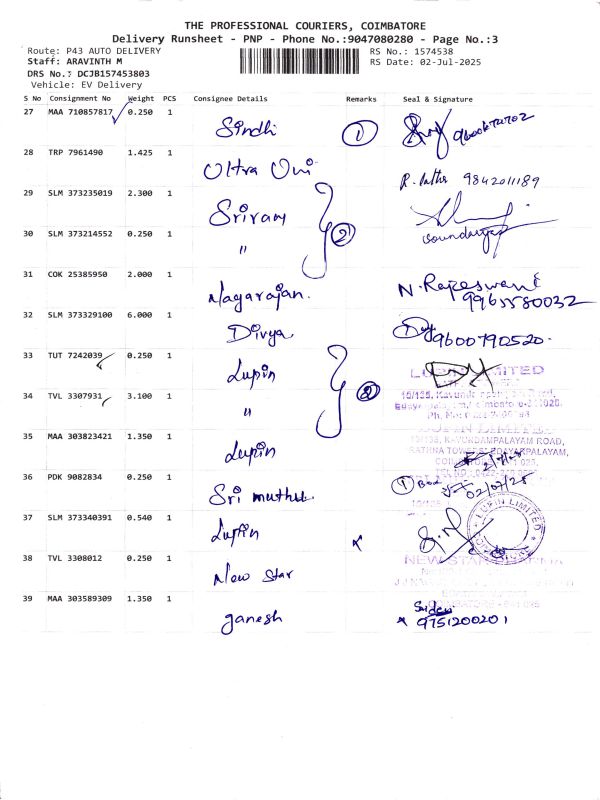 THE PROFESSIONAL COURIERS, COIMBATORE
Delivery Runsheet - PNP - Phone No.:9047080280 - Page No.:3
Route: P43 AUTO DELIVERY
RS No.: 1574538
Staff: ARAVINTH M
RS Date: 02-Jul-2025
DRS No.: DCJB157453803
Vehicle: EV Delivery
S No Consignment No Weight PCS Consignee Details Remarks Seal & Signature
27 MAA 710857817 0.250 1 Sindhi 1
28 TRP 7961490 1.425 1 Ultra Uni 9842011189
29 SLM 373235019 2.300 1 Sriram
30 SLM 373214552 0.250 1 " 2 Soundarya
31 COK 25385950 2.000 1 Nagarajan. N. Rajeswari
9965580032
32 SLM 373329100 6.000 1 Divya 9600790520
33 TUT 7242039 0.250 1 Lupin
34 TVL 3307931 3.100 1 " 2
35 MAA 303823421 1.350 1 Lupin
36 PDK 9082834 0.250 1 Sri muthu 1 02/07/25
37 SLM 373340391 0.540 1 Lupin LUPIN LIMITED
38 TVL 3308012 0.250 1 New Star
39 MAA 303589309 1.350 1 ganesh 9751200201